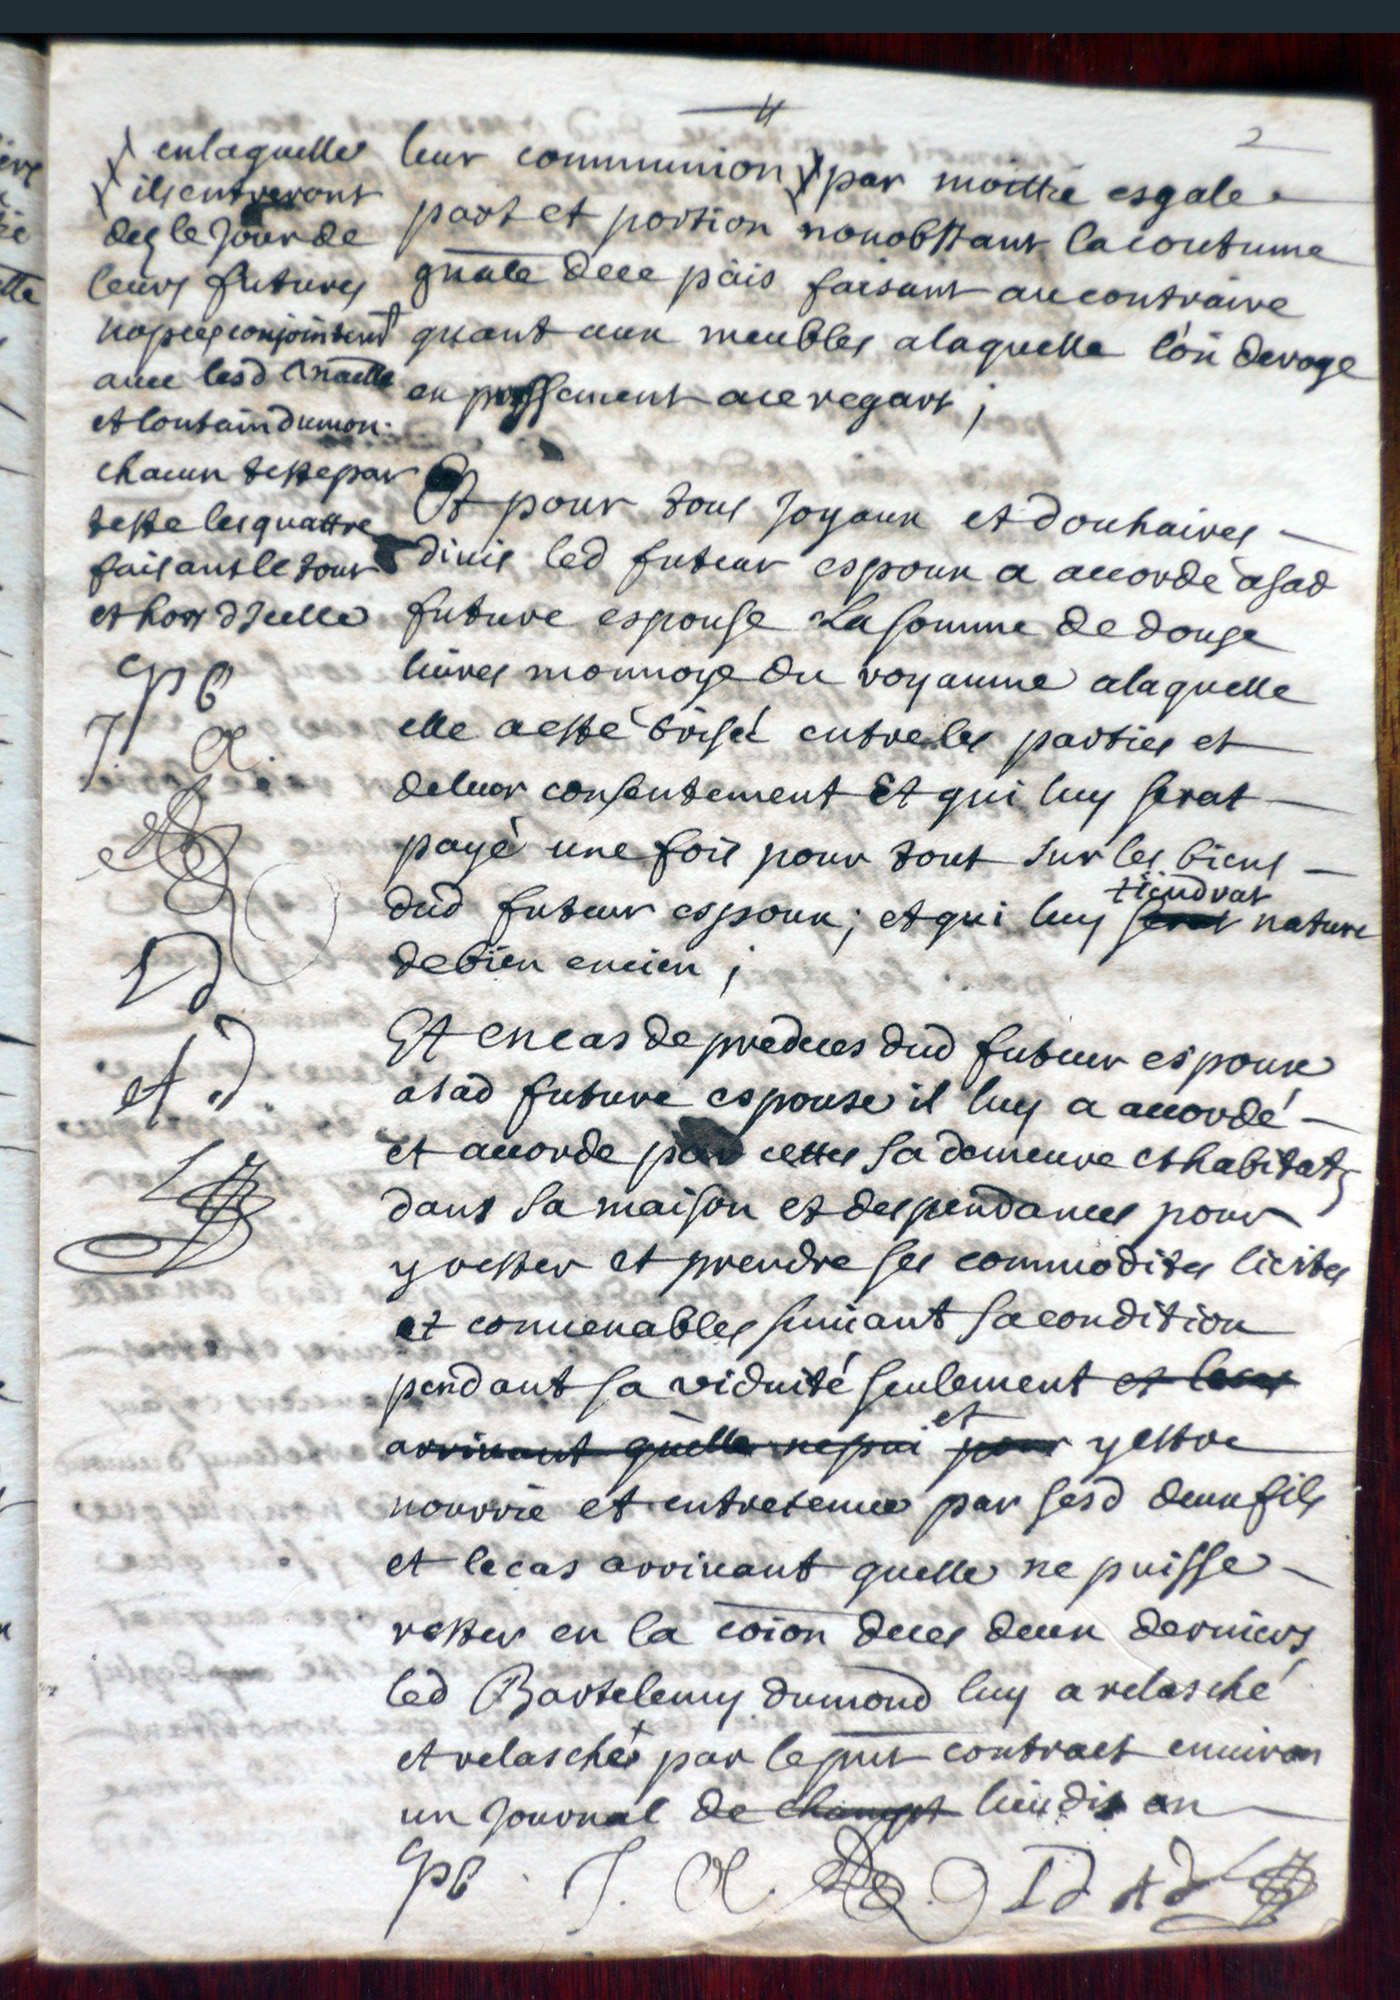 2
enlaquelle
ils entreront
deq le Jour de
leurs futures
nopces conjointemt
avec lesd
et lontain dumon.
chacun teste par
teste les quattre
faisant le tour
et hors d Jcelle
leur communion par moittie esgale
part et portion nonobstant la coutume
gnale dece païs faisant au contraire
quant aux meubles alaquelle lon deroge
en pressement ace regart ;
Et pour tous Joyaux et douhaires
divis led futeur espoux a accordé àsad
future espouse La somme de douze
livres monnoye du royaume alaquelle
elle aesté brisée entre les parties et
deleur consentement Et qui luy serat
payé une fois pour tout sur les biens
dud futeur espoux ; et qui luy serat nature
tiendrat
debien encien ;
Et encas de predeces dud futeur espoux
asad future espouse il luy a accordé
et accorde par cettes sa demeure et habitat
dans sa maison et despendances pour
y rester et prendre ses commodites licites
et convenables suivant sa condition
pendant sa viduité seulement et le cas
arrivant quelle nepui pour y estre
et
nourrie et entretenue par sesd deux fils
et lecas arrivant quelle ne puisse
rester en la coion deces deux derniers
led Bartelemy dumond luy a relasché
et relasche par le pnt contract environ
un Journal de champt lieudit en